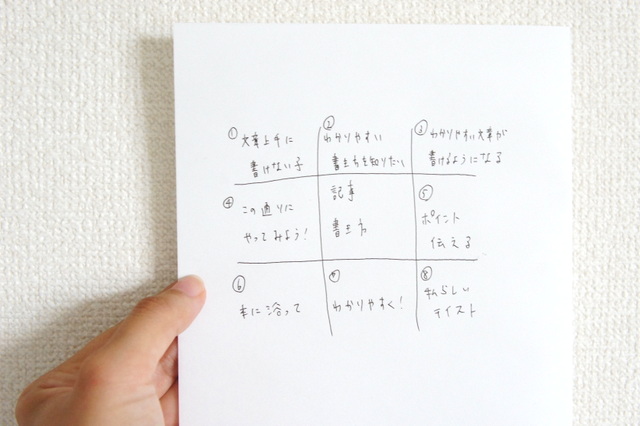 ① 文章上手に
書けない子
② わかりやすい
書き方を知りたい
③ わかりやすい文章が
書けるようになる
④ この通りに
やってみよう!
記事
書き方
⑤
ポイント
伝える
⑥
本に沿って
⑦
わかりやすく!
⑧
私らしい
テイスト